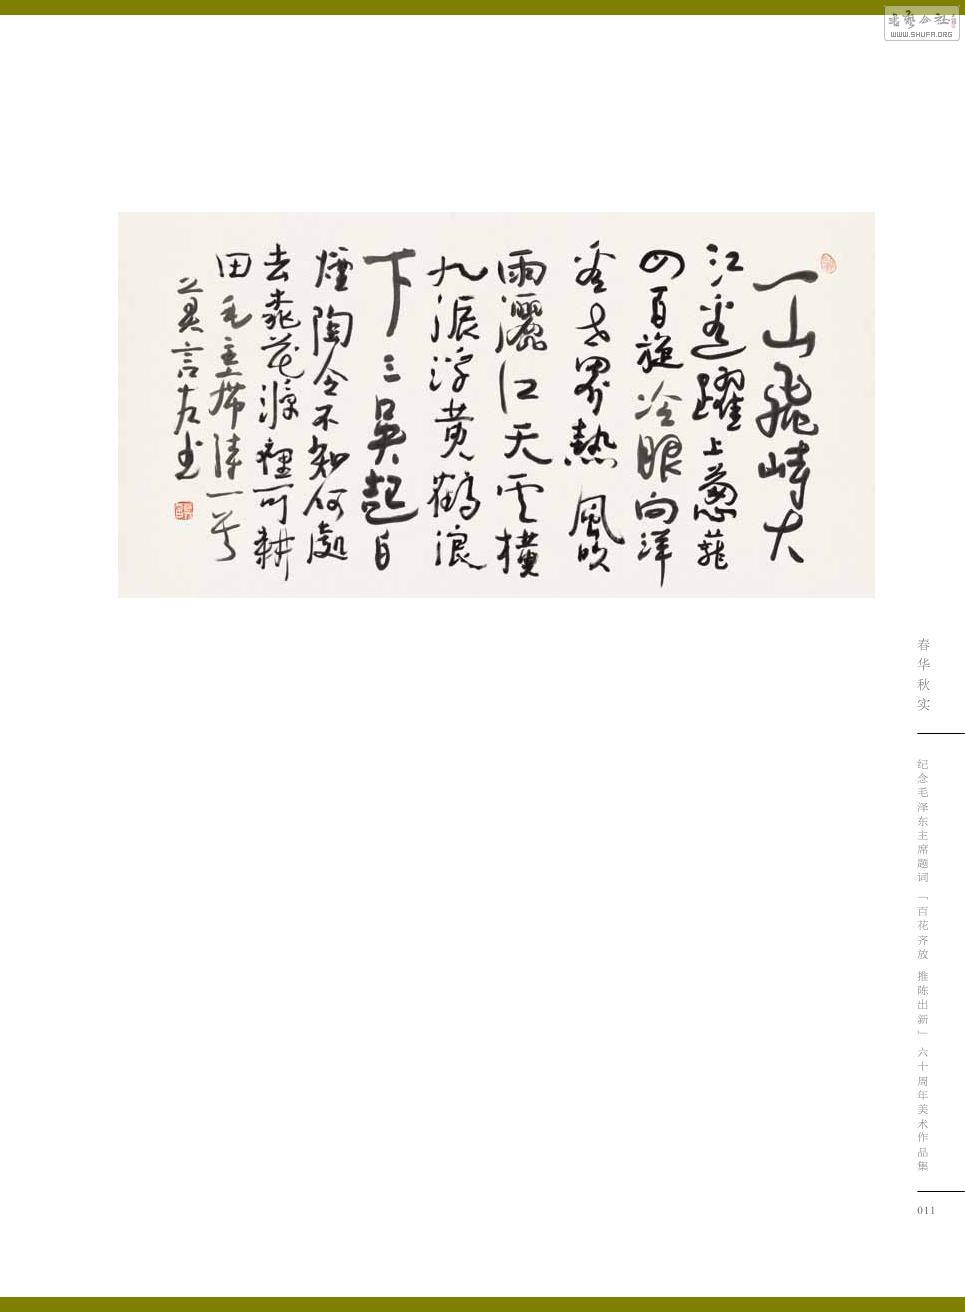 書藝公社
WWW.SHUFA.ORG
一山飛峙大
江邊躍上葱蘢
四百旋冷眼向洋
看世界熱風吹
雨灑江天雲橫
九派浮黄鶴浪
下三吳起白
煙陶令不知何處
去桃花源裡可耕
田毛主席詩一首
莫言左书
春华秋实
纪念毛泽东主席题词「百花齐放 推陈出新」六十周年美术作品集
011